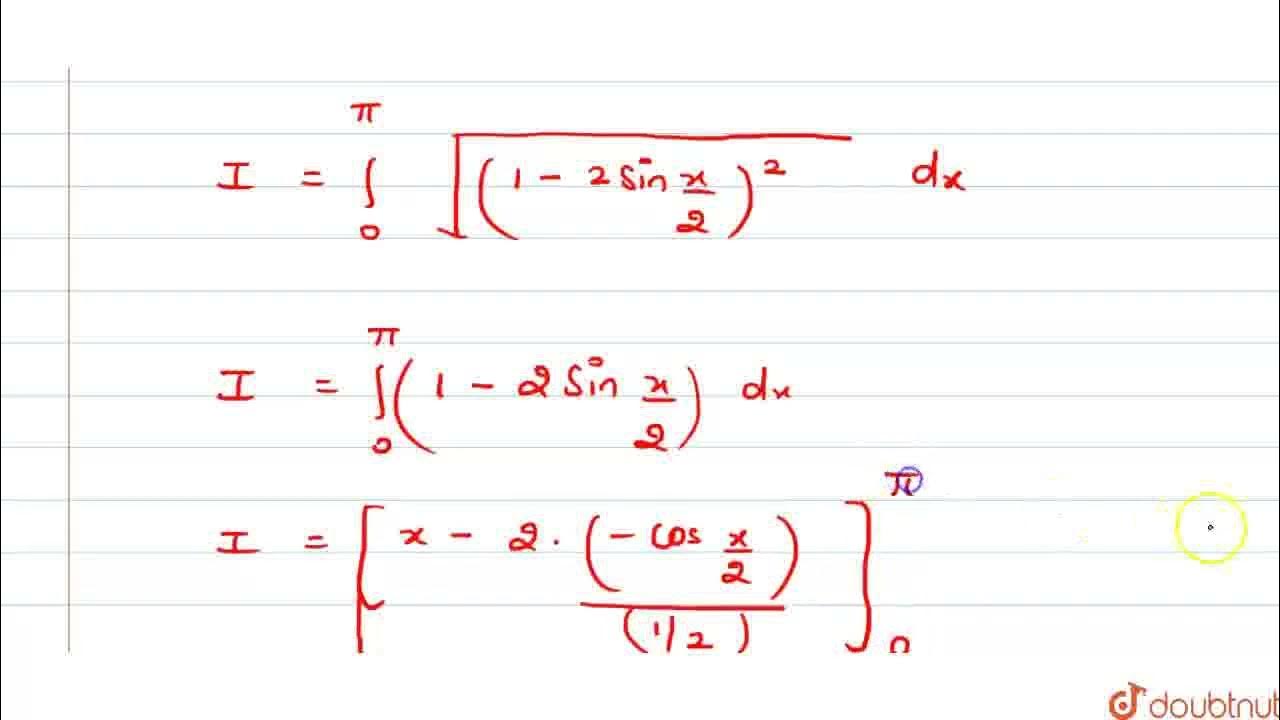 I = ∫₀^π √((1 - 2 sin x/2)²) dx
I = ∫₀^π (1 - 2 sin x/2) dx
I = [x - 2 · (-cos x/2)/(1/2)]₀^π
doubtnut